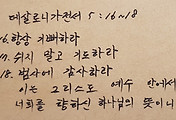 데살로니가전서 5:16~18
16. 항상 기뻐하라
17. 쉬지 말고 기도하라
18. 범사에 감사하라
이는 그리스도 예수 안에서
너희를 향하신 하나님의 뜻이니